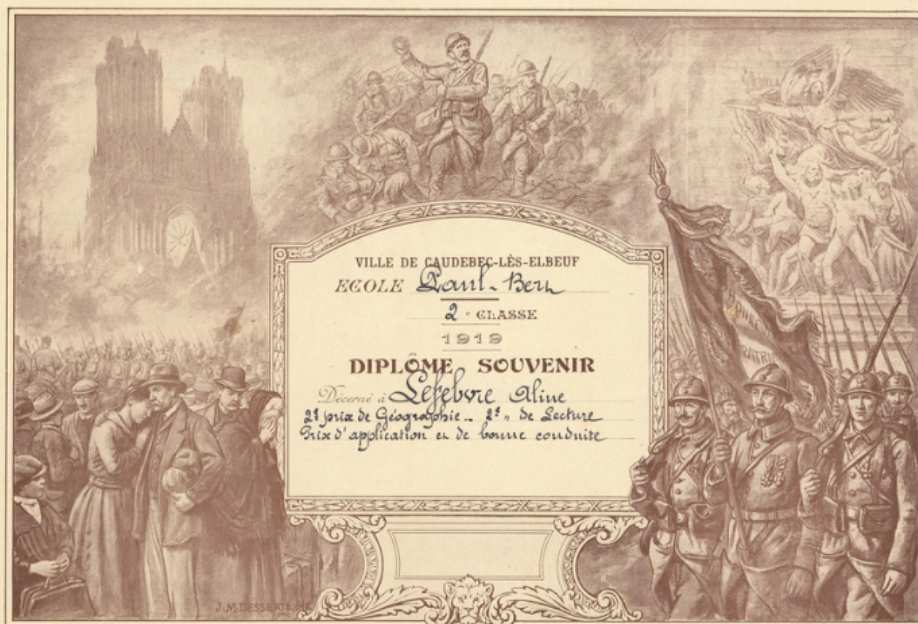 VILLE DE CAUDEBEC-LÈS-ELBEUF
ECOLE Paul-Bert
2e CLASSE
1919
DIPLÔME SOUVENIR
Décerné à Lefebvre Aline
2e prix de Géographie.. 2e " de Lecture
Prix d'application et de bonne conduite
PATRIE
J.M.DESSERTENNE